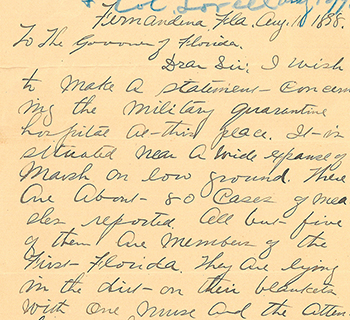 Fernandina Fla. Aug. 1898.
To The Governor of Florida.
Dear Sir: I wish
to make a statement concern
ing the military quarantine
hospital at this place. It is
situated near a wide expanse of
Marsh on low ground. There
are about 80 cases of mea
sles reported. All but five
of them are members of the
First Florida. They are lying
in the dirt on their blankets
with one nurse and the atten